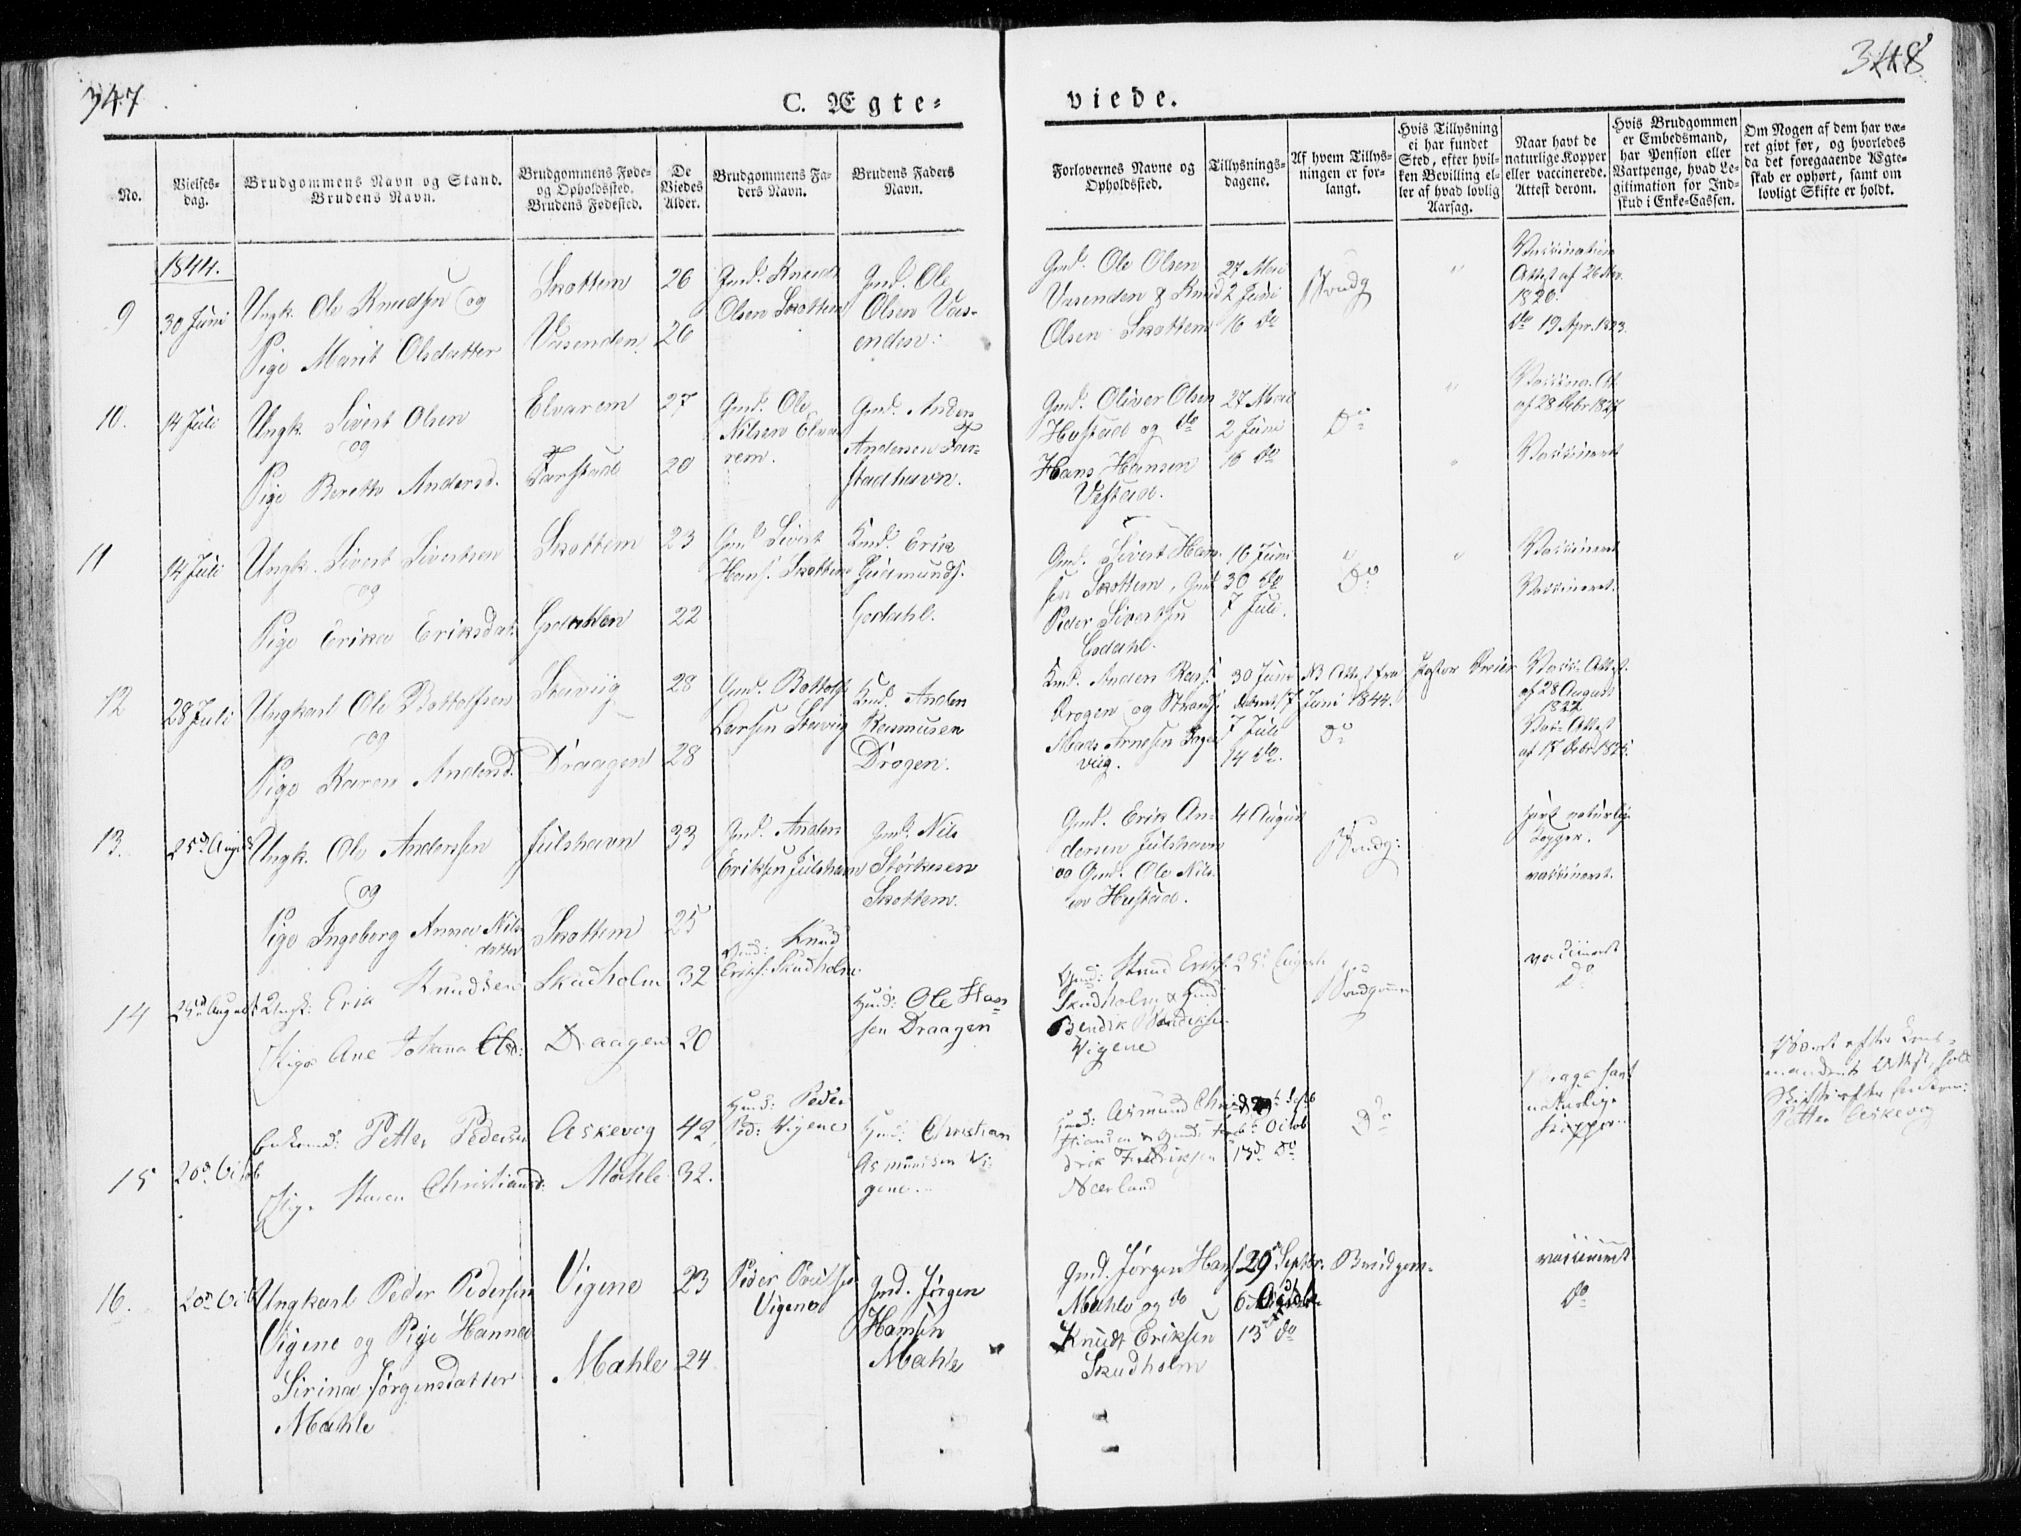 347
348
C. Ægte-
viede.
No.
Vielses-
dag.
Brudgommens Navn og Stand.
Brudens Navn.
Brudgommens Føde-
og Opholdssted.
Brudens Fødested.
De
Viedes
Alder.
Brudgommens Fa-
ders Navn.
Brudens Faders
Navn.
Forlovernes Navne og
Opholdssted.
Tillysnings-
dagene.
Af hvem Tillys-
ningen er for-
langt.
Hvis Tillysning
ei har fundet
Sted, efter hvil-
ken Bevilling el-
ler af hvad lovlig
Aarsag.
Naar havt de
naturlige Kopper
eller vaccinerede.
Attest derom.
Hvis Brudgommen
er Embedsmand,
har Pension eller
Vartpenge, hvad Le-
gitimation for Ind-
skud i Enke-Cassen.
Om Nogen af dem har væ-
ret givt før, og hvorledes
da det foregaaende Ægte-
skab er ophørt, samt om
lovligt Skifte er holdt.
1844.
9
30 Juni
Ungk. Ole Knudsen og
Pige Marit Olsdatter
Skottem
Vasenden
26
26
Gmd. Knud
Olsen Skottem
Gmd. Ole
Olsen Vas-
enden.
Gmd. Ole Olsen
Vasenden & Knud
Olsen Skottem
27 Mai
2 Juni
16 do
Brudg
Vaccination
Attest af 26
1820.
do 19 Apr. 1823.
10.
14 Juli
Ungk. Sivert Olsen
og
Pige Beretha Andersd.
Elvarem
Farstad
27
20
Gmd. Ole
Nilsen Elva
rem.
Gmd. Anders
Andersen Far-
stadhavn.
Gmd. Oliver Olsen
Hustad og do
Hans Hansen
Vestad.
27 Mai
2 Juni
16 do
Do
Vaccina. At.
af 28 1827
Vaccineret
11
14 Juli
Ungk. Sivert Sivertsen
og
Pige Erika Eriksdat.
Skottem
23
22
Gmd. Sivert
Hans. Skottem
Gmd. Erik
Gudmunds.
Godahl.
Gmd. Sivert Han-
sen Skottem, Gmd.
Peder Sivertsen
Godahl.
16 Juni
30 do
7 Juli.
Do
Vaccineret
Vaccineret.
12
28 Juli
Ungkarl Ole Bottolfsen
og
Pige Karen Andersd.
Stavig
Draagen
28
28
Gmd. Bottolf
Larsen Stavig
Gmd. Anders
Rasmusen
Drogen.
Gmd. Anders Ras.
Drogen og
Mads Arnesen Inge
vig.
30 Juni NB Attest fra Pastor
Juni 1844.
7 Juli
14 do.
Do
Vacc. Attest
af 28 August
1822
Vac. Attest
af 15
13.
25d August
Ungk. Ole Andersen
og
Pige Ingeborg Anna Nils
datter
Julshavn
Skottem
33
25
Gmd. Anders
Eriksen Julshavn
Gmd. Nils
Størkesen
Skottem.
Gmd. Erik An-
dersen Julshavn
og Gmd. Ole Nils-
en Hustad.
4 August
Brudg:
havt naturlig
Kopper.
vaccineret.
14
25d August
Ungk: Erik Knudsen
Pige Ane Johana Olsd:
Skudholm
Draagen
32
20
Gmd: Knud
Eriks: Skudholm
Gmd: Ole Han=
sen Draagen
Gmd: Knud Eriks:
Skudholm & Gmd
Bendik Bendiksen
Vigene
25d August
Brudgommen
vaccineret
do
15
20d Octob
Enkemd: Petter Pedersen
Pige Maren Christiansd:
Askevog
Mahle
42
32.
Gmd: Peder
Ped: Vigene
Gmd: Christian
Asmundsen Vi-
gene.
Gmd: Asmund Chri
stiansen & Gmd: Fre
drik Fredriksen
Nærland
29de Septb
6te Octob
13d Do
Do
Begge havt
naturlige
Kopper.
efter
Attest, holdt
Skifte efter
Petter Askevog
16.
20d Octb
Ungkarl Peder Pedersen
Vigene og Pige Hanna
Sirina Jørgensdatter
Mahle
Vigene
Mahle
23
24
Peder Poulsen
Vigene
Gmd. Jørgen
Hansen
Mahle
Gmd. Jørgen Hans.
Mahle og do
Knudt Eriksen
Skudholm
29d Septbr.
6 Octob.
13d do
Brudgom-
vaccineret
do